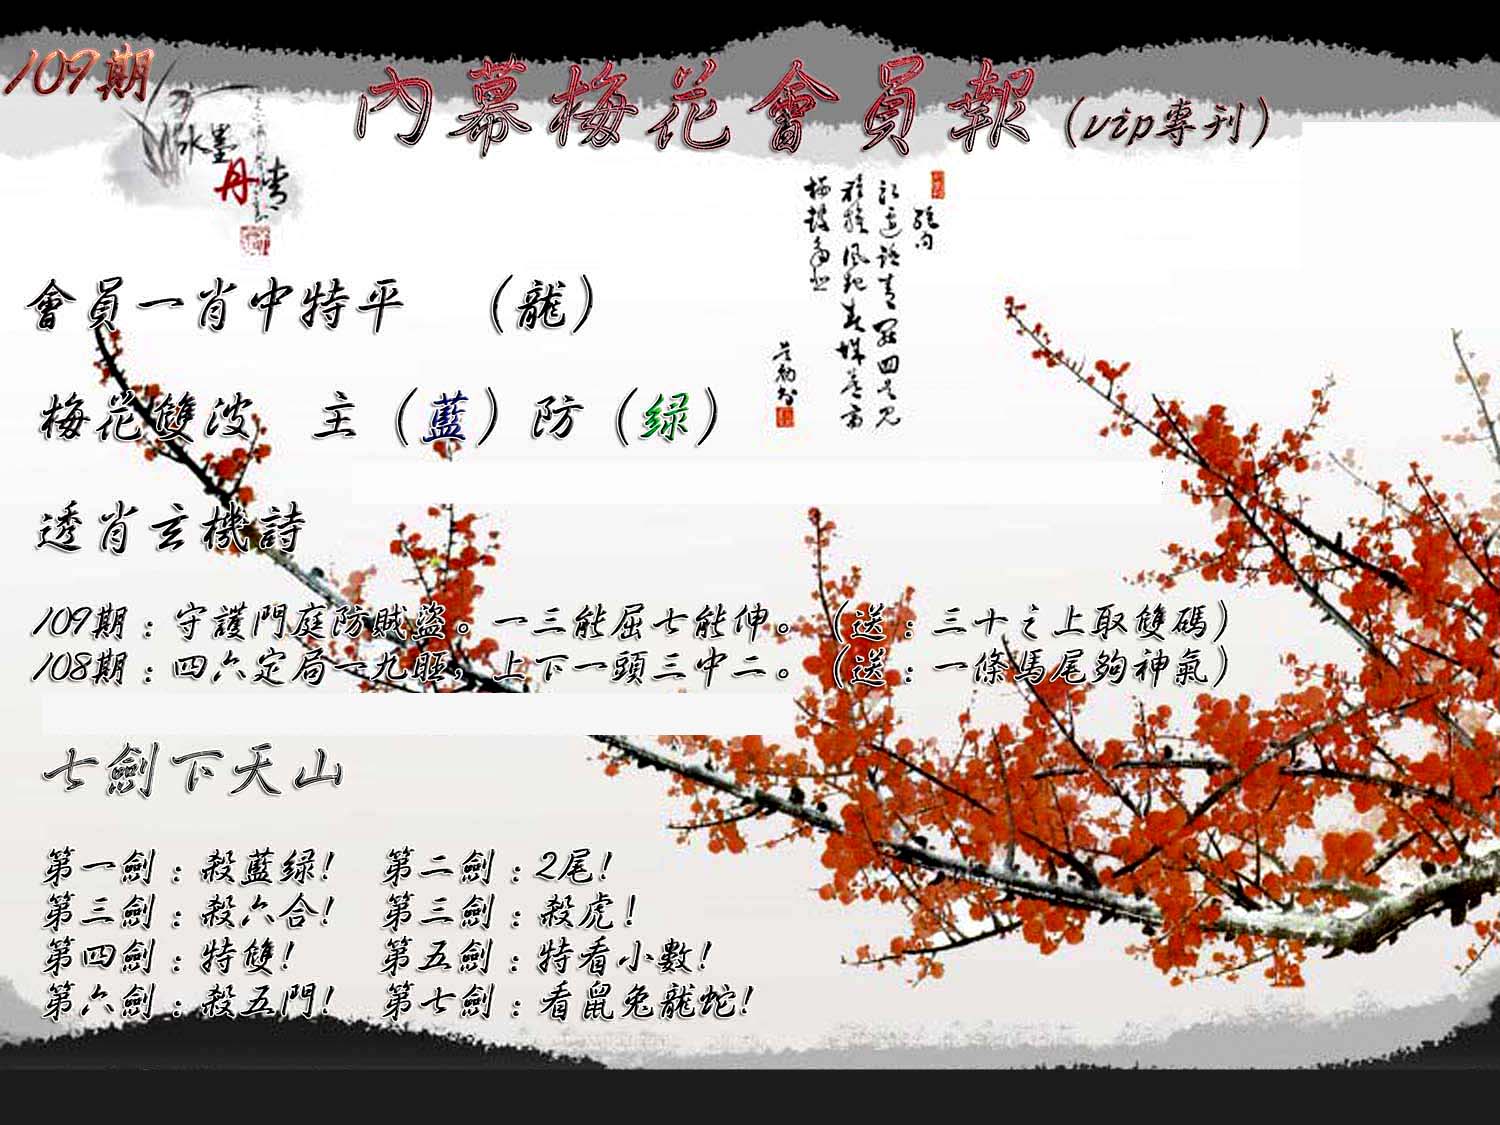 109期
內幕梅花會員報（vip專刊）
水墨
丹青
絕句
會員一肖中特平　（龍）
梅花雙波　主（藍）防（绿）
透肖玄機詩
109期：守護門庭防賊盜。一三能屈七能伸。（送：三十之上取雙碼）
108期：四六定局一九旺，上下一頭三中二。（送：一條馬尾夠神氣）
七劍下天山
第一劍：殺藍绿！　第二劍：2尾！
第三劍：殺六合！　第三劍：殺虎！
第四劍：特雙！　第五劍：特看小數！
第六劍：殺五門！　第七劍：看鼠兔龍蛇！